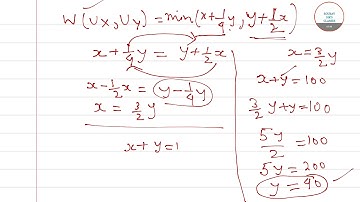 W(Ux,Uy) = min(x+1/4y, y+1/2x)
x+1/4y = y+1/2x
x-1/2x = y-1/4y
x = 3/2y
x+y=1
x=3/2y
x+y=100
3/2y+y=100
5y/2=100
5y=200
y=40